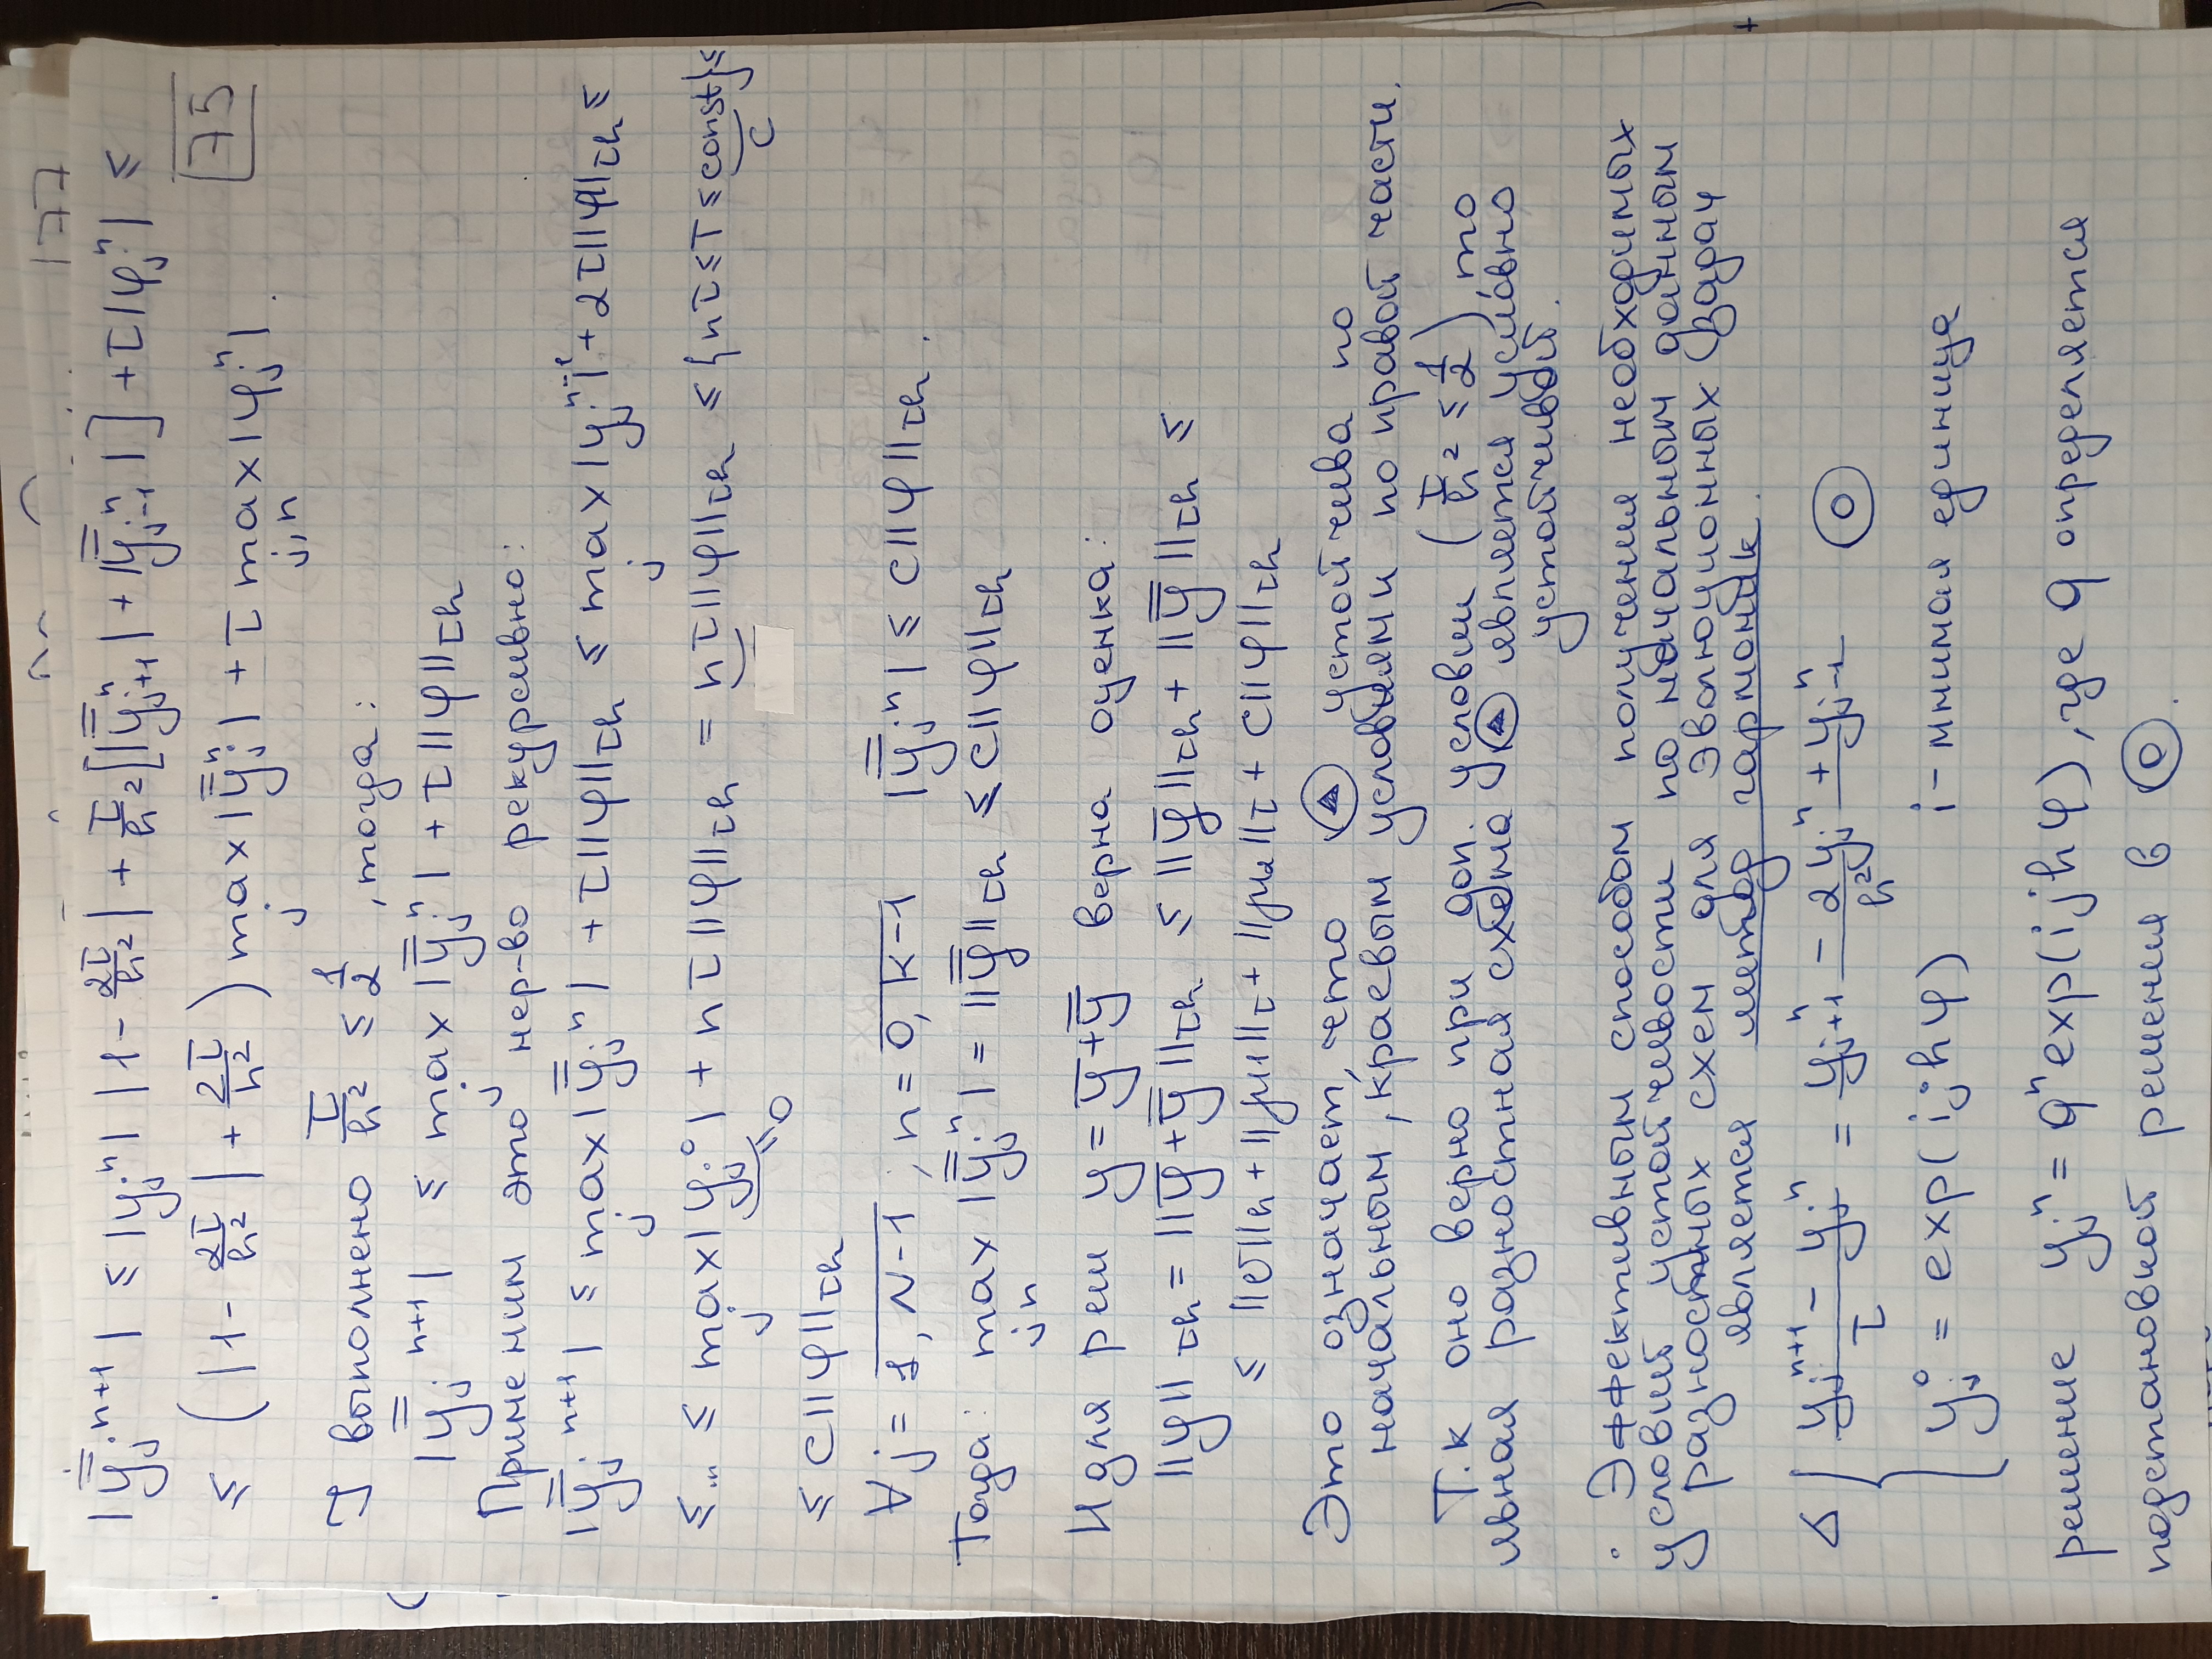 177
75
|ȳ̄_j^{n+1}| ≤ |y_j^n| |1 - 2τ/h²| + τ/h² [|ȳ̄_{j+1}^n| + |ȳ̄_{j-1}^n|] + τ|φ_j^n| ≤
≤ (|1 - 2τ/h²| + 2τ/h²) max_j |ȳ̄_j^n| + τ max_{j,n} |φ_j^n|.
выполнено τ/h² ≤ 1/2, тогда:
|ȳ̄_j^{n+1}| ≤ max_j |ȳ̄_j^n| + τ||φ||_{τh}
Применим это нер-во рекурсивно:
|ȳ̄_j^{n+1}| ≤ max_j |ȳ̄_j^n| + τ||φ||_{τh} ≤ max_j |y_j^{n-1}| + 2τ||φ||_{τh} ≤
≤ ... ≤ max_j |y_j^0| + nτ||φ||_{τh} = nτ||φ||_{τh} ≤ {nτ ≤ T ≤ const} ≤
=0 c
≤ c||φ||_{τh}
∀ j = 1, N-1; n = 0, K-1 |ȳ̄_j^n| ≤ c||φ||_{τh}.
Тогда: max_{j,n} |ȳ̄_j^n| = ||ȳ̄||_{τh} ≤ c||φ||_{τh}
И для реш y = ȳ + ȳ̄ верна оценка:
||y||_{τh} = ||ȳ + ȳ̄||_{τh} ≤ ||ȳ||_{τh} + ||ȳ̄||_{τh} ≤
≤ ||σ||_h + ||μ||_τ + ||μ||_τ + c||φ||_{τh}
Это означает, что ▲ устойчива по
начальным, краевым условиям и по правой части.
Т.к оно верно при доп. условии (τ/h² ≤ 1/2) то
явная разностная схема ▲ является условно
устойчивой.
· Эффективным способом получения необходимых
условий устойчивости по начальным данным
разностных схем для эволюционных задач
является метод гармоник.
Δ { (y_j^{n+1} - y_j^n)/τ = (y_{j+1}^n - 2y_j^n + y_{j-1}^n)/h² ⊙
y_j^0 = exp(ijhφ) i - мнимая единица
решение y_j^n = q^n exp(ijhφ), где q определяется
подстановкой решения в ⊙.